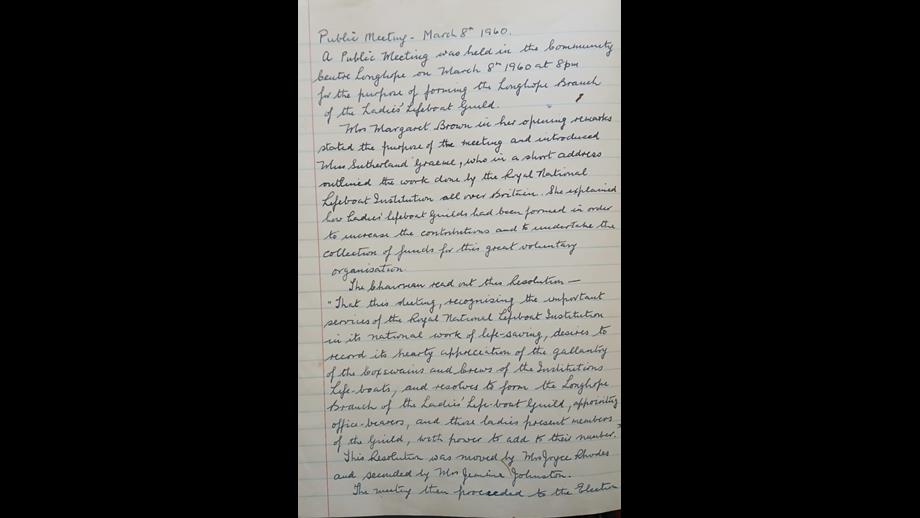 Public Meeting - March 8th 1960.
A Public Meeting was held in the Community
Centre Longhope on March 8th 1960 at 8pm
for the purpose of forming the Longhope Branch
of the Ladies' Lifeboat Guild.
Mrs Margaret Brown in her opening remarks
stated the purpose of the meeting and introduced
Miss Sutherland Graeme, who in a short address
outlined the work done by the Royal National
Lifeboat Institution all over Britain. She explained
how Ladies' lifeboat Guilds had been formed in order
to increase the contributions and to undertake the
collection of funds for this great voluntary
organisation.
The Chairman read out this Resolution —
"That this Meeting, recognising the important
services of the Royal National Lifeboat Institution
in its national work of life-saving, desires to
record its hearty appreciation of the gallantry
of the Coxswains and Crews of the Institutions
Life-boats, and resolves to form the Longhope
Branch of the Ladies' Life-boat Guild, appointing
office-bearers, and those ladies present members
of the Guild, with power to add to their number."
This Resolution was moved by Mrs Joyce Rhodes
and seconded by Mrs Jeanine Johnston.
The meeting then proceeded to the Election